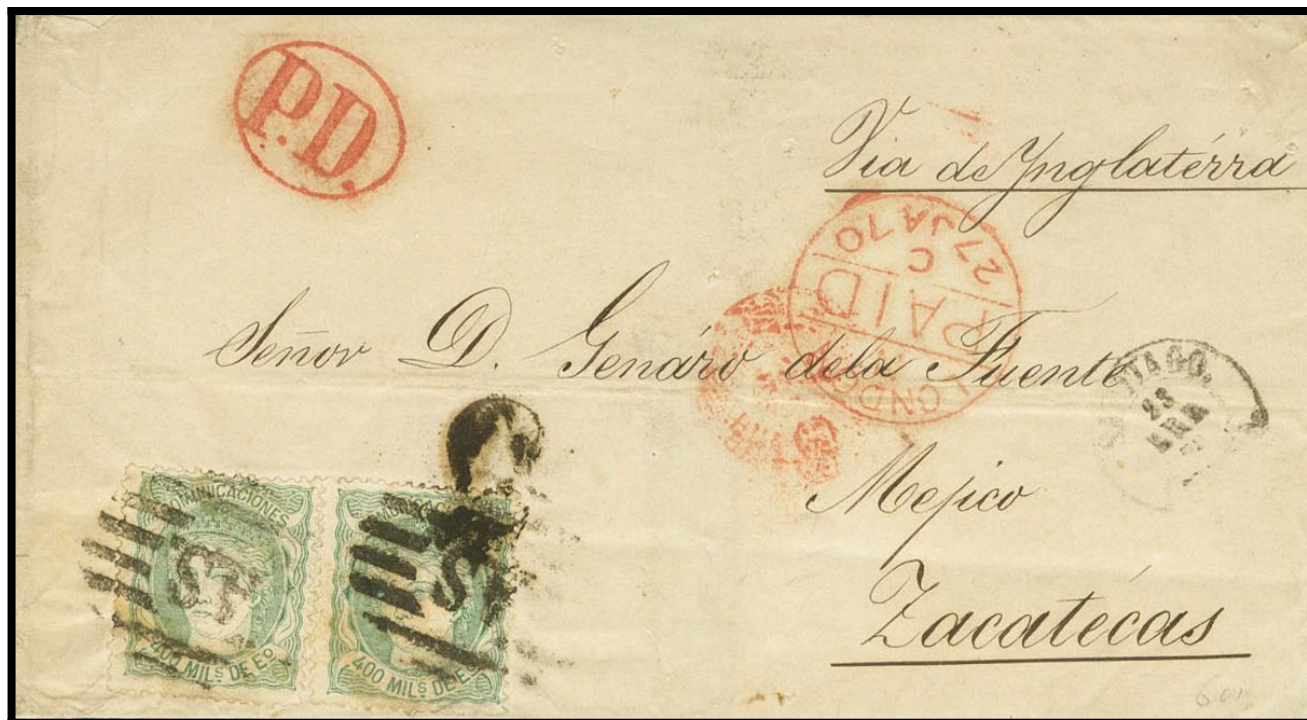 P.D.
Via de Ynglatérra
LONDON
PAID
C
27 JA 70
Señor D. Genáro dela Fuente
23
ENE
Mejico
Zacatécas
COMUNICACIONES
400 MILS DE Eo
400 MILS DE Eo